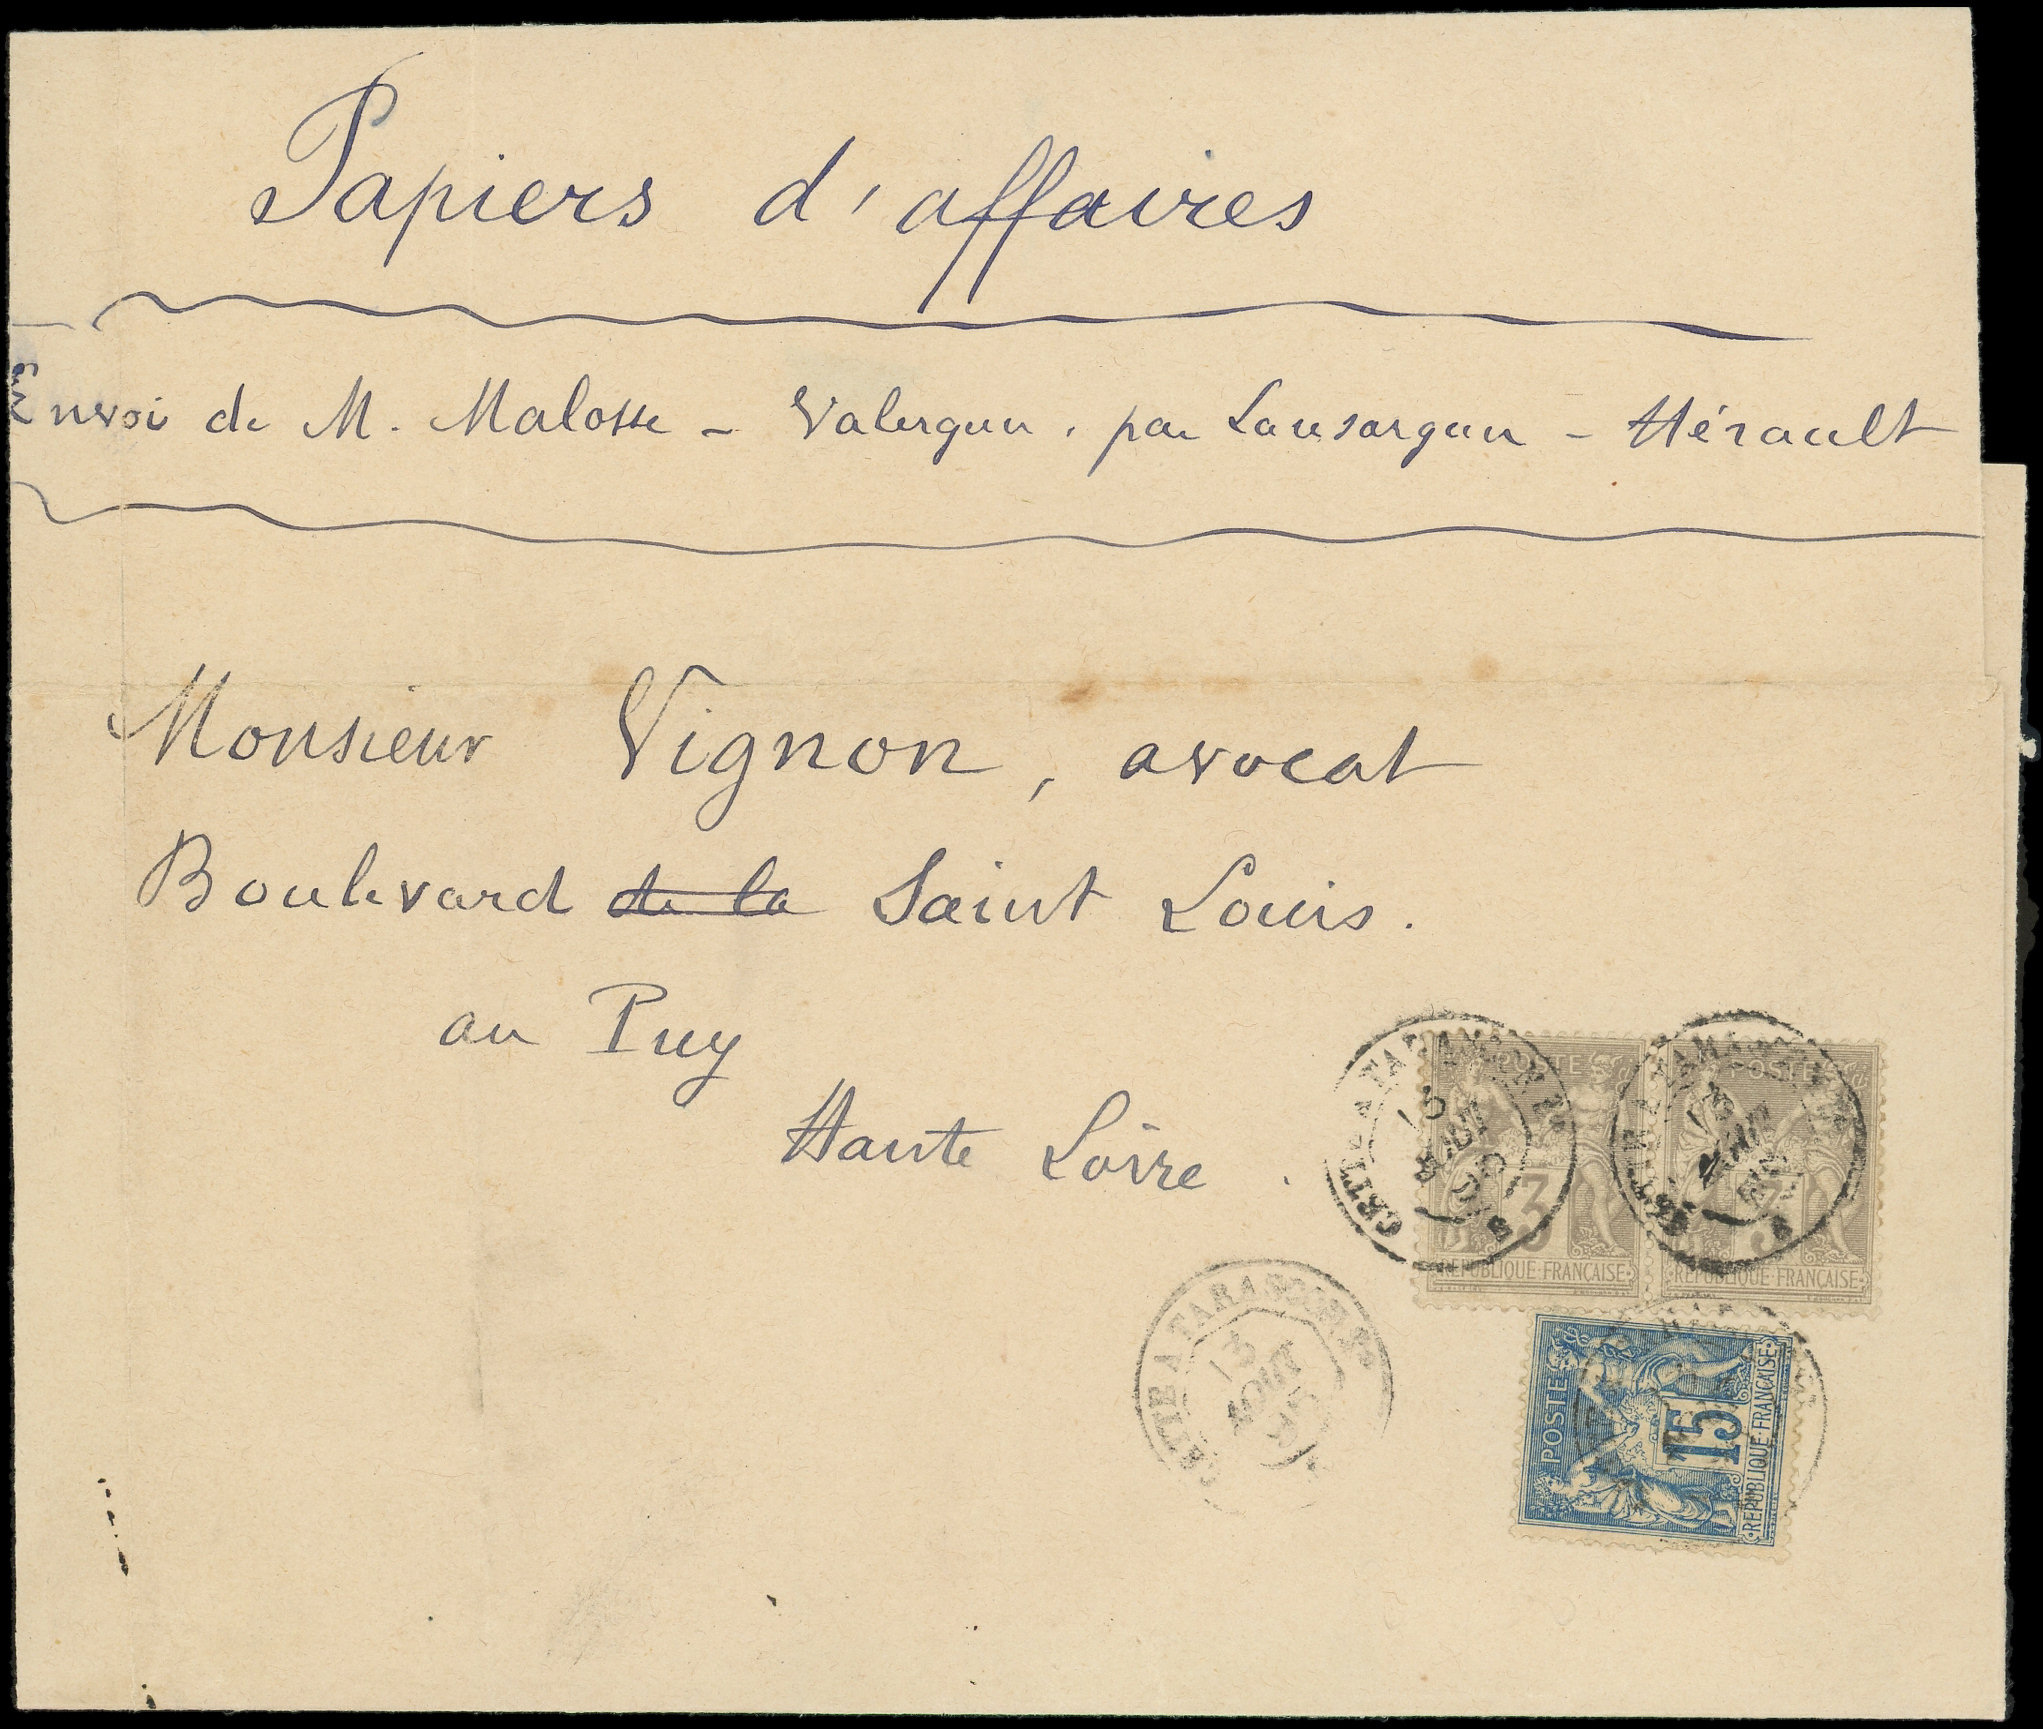 Papiers d'affaires
Envoi de M. Malosse - Valergues, par Lansargues - Hérault
Monsieur Vignon, avocat
Boulevard de la Saint Louis.
au Puy
Haute Loire.
POSTES POSTES
3 3
REPUBLIQUE FRANÇAISE REPUBLIQUE FRANÇAISE
CETTE A TARASCON
13
AOUT
POSTES
15
REPUBLIQUE FRANÇAISE